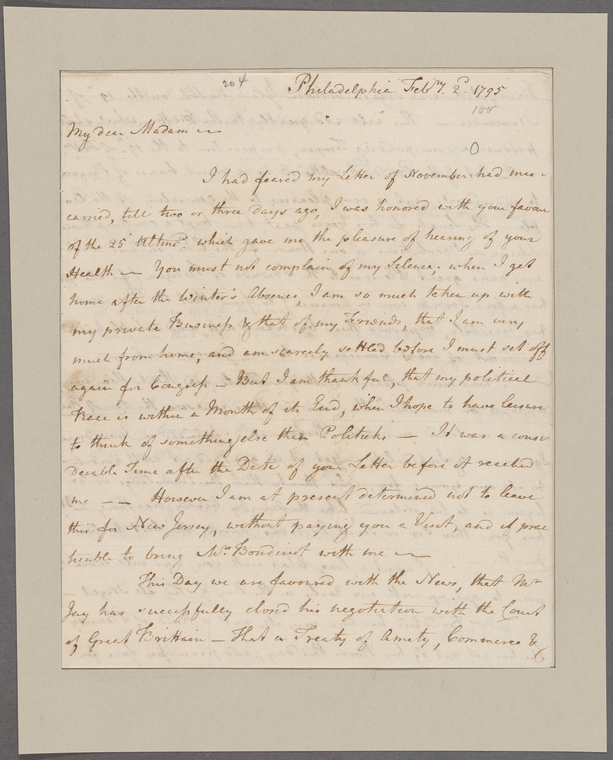 204
Philadelphia Feby. 2d. 1795
My dear Madam
I had feared my Letter of November had mis-
carried, till two or three days ago, I was honored with your favour
of the 25 Ultmo. which gave me the pleasure of hearing of your
Health — You must not complain of my Silence, when I get
home after the Winter's Absence, I am so much taken up with
my private Business & that of my Friends, that I am very
much from home, and am scarcely settled before I must set off
again for Congress — But I am thankful, that my political
Race is within a Month of its End, when I hope to have leisure
to think of something else than Politicks — It was a consi-
derable Time after the Date of your Letter before it reached
me — — However I am at present determined not to leave
this for New Jersey, without paying you a Visit, and if prac
ticable to bring Mrs. Boudinot with me —
This Day we are favoured with the News, that Mr
Jay has successfully closed his negotiation with the Court
of Great Brittain — That a Treaty of Amity, Commerce &